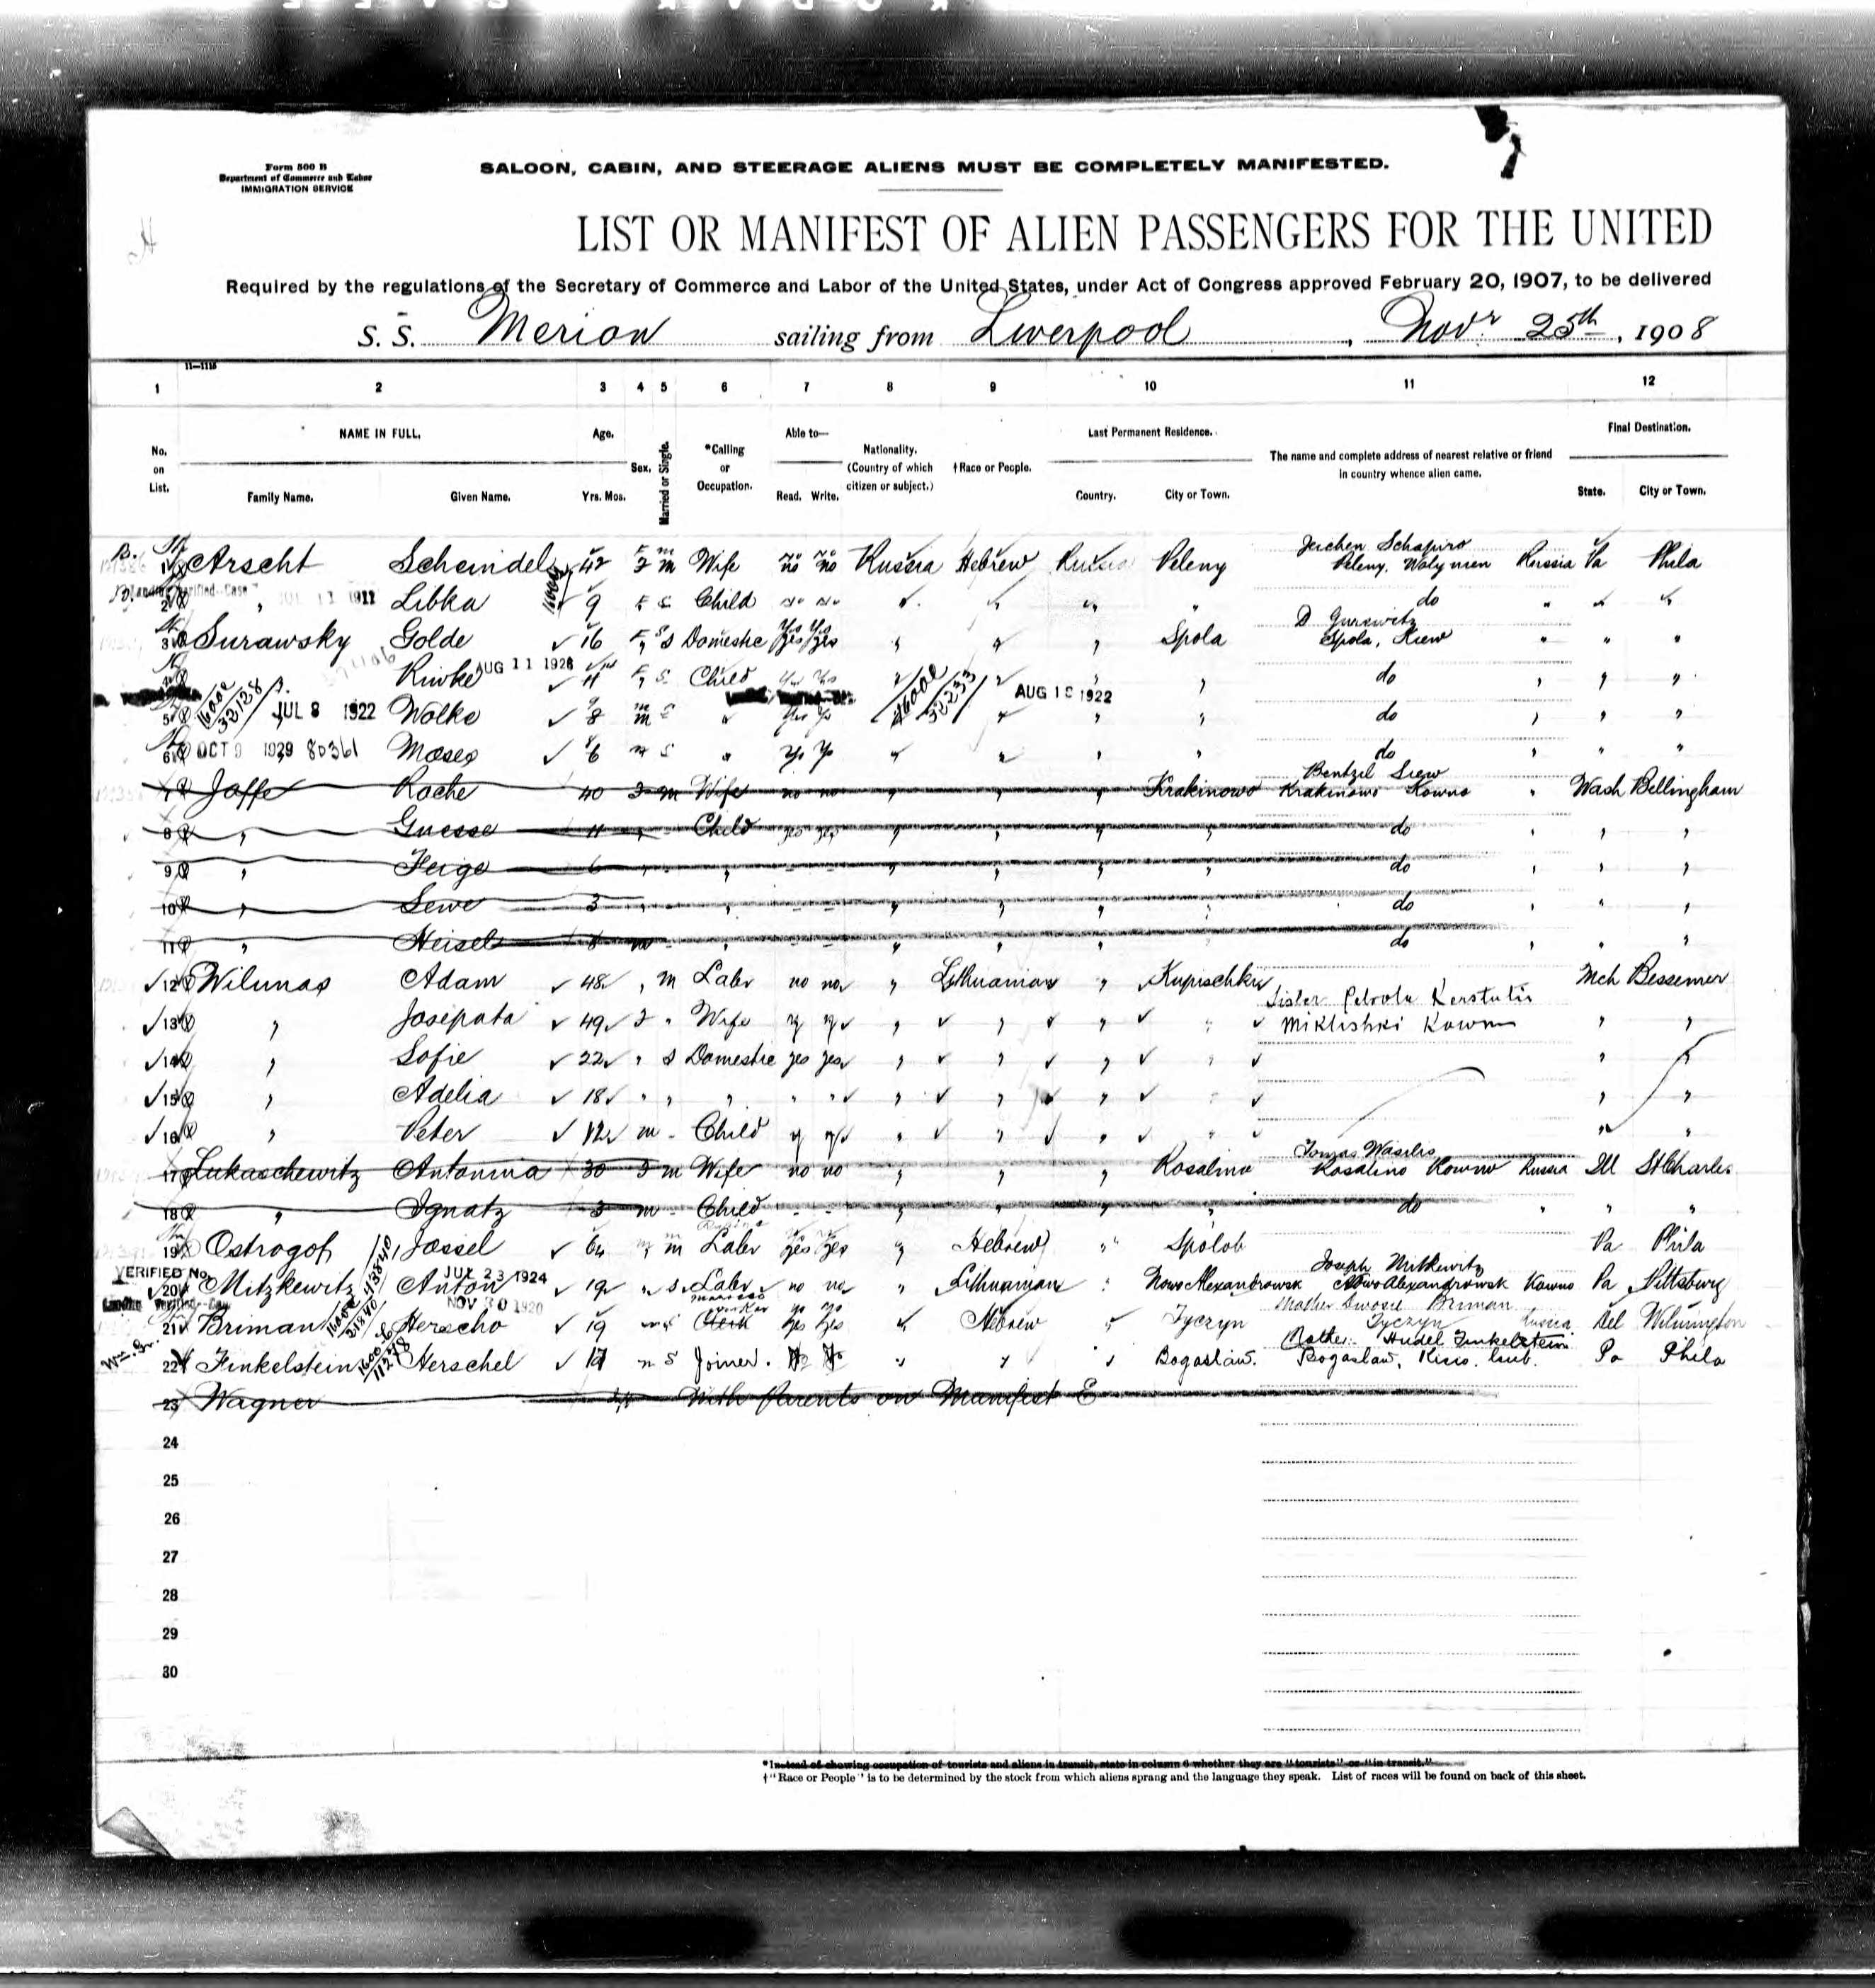 Form 500 B
Department of Commerce and Labor
IMMIGRATION SERVICE
SALOON, CABIN, AND STEERAGE ALIENS MUST BE COMPLETELY MANIFESTED.
LIST OR MANIFEST OF ALIEN PASSENGERS FOR THE UNITED
Required by the regulations of the Secretary of Commerce and Labor of the United States, under Act of Congress approved February 20, 1907, to be delivered
S. S. Merion sailing from Liverpool, Novr 25th, 1908
11—1115
1 2 3 4 5 6 7 8 9 10 11 12
No. on List. NAME IN FULL. Family Name. Given Name. Age. Yrs. Mos. Sex. Married or Single. *Calling or Occupation. Able to— Read. Write. Nationality. (Country of which citizen or subject.) †Race or People. Last Permanent Residence. Country. City or Town. The name and complete address of nearest relative or friend in country whence alien came. Final Destination. State. City or Town.
1 Arscht Scheindel 42 m Wife no no Russia Hebrew Russia Peleny Schapiro Peleny, Wolynien Russia Pa Phila
2 " Libka 9 Child " " " " do " " "
1911
3 Surawsky Golde 16 S Domestic yes yes " " " Spola D Gurewitz Spola, Kiew " " "
4 Riwke AUG 11 1926 11 S Child " " " " do " " "
5 JUL 8 1922 Wolke 8 m " " " " " do " " "
1600e 32128 1600e 32233 AUG 1922
6 OCT 9 1929 80361 Moses 6 m S " " " " " do " " "
7 Jaffe Roche 40 m Wife no no " " " Krakinowo Bentzil Siew Krakinowo Kowno " Wash Bellingham
8 " Guesse 11 " Child yes yes " " " " do " " "
9 " Feige 6 " " - - " " " " do " " "
10 " Sewe 3 " " - - " " " " do " " "
11 " Heisel m " - - " " " do " " "
12 Wilunas Adam 48 " m Labr no no " Lithuanian " Kupischki Mch Bessemer
13 " Josepata 49 " Wife " " " " Sister Petrola Kerstutis Miklishki Kowno " "
14 " Sofie 22 " S Domestic yes yes " " " " " "
15 " Adelia 18 " " " " " " " " " " "
16 " Peter 12 m - Child " " " " " "
17 Lukaschewitz Antonina 30 m Wife no no " " " Rosalino Tomas Wasilis Rosalino Kowno Russia Ill St Charles
18 " Ignatz 3 m - Child - - " " " " do " " "
19 Ostrogof Jossel 64 m Labr yes yes " Hebrew " Spolob Pa Phila
VERIFIED No.
20 Mitzkewitz Anton JUL 23 1924 19 " S Labr no no " Lithuanian " Nowo Alexandrowsk Joseph Mitkewitz Nowo Alexandrowsk Kowno Pa Pittsburg
NOV 30 1920
21 Briman Herscho 19 Clerk yes yes " Hebrew " Tyczyn Mother Briman Tyczyn Russia Del Wilmington
22 Finkelstein Herschel 17 S Joiner. " " " Bogaslaw. Mother Hudel Finkelstein Bogaslaw, Pa Phila
23 Wagner With parents on Manifest E
24
25
26
27
28
29
30
*Instead of showing occupation of tourists and aliens in transit, state in column 6 whether they are "tourists" or "in transit."
†"Race or People" is to be determined by the stock from which aliens sprang and the language they speak. List of races will be found on back of this sheet.